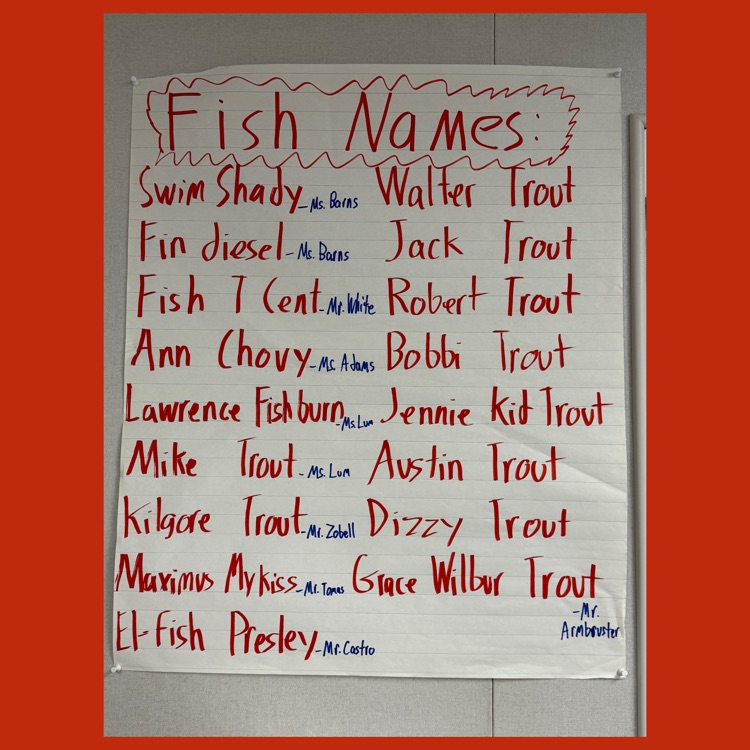 Fish Names:
Swim Shady - Ms. Barns Walter Trout
Fin diesel - Ms. Barns Jack Trout
Fish T Cent - Mr. White Robert Trout
Ann Chovy - Ms. Adams Bobbi Trout
Lawrence Fishburn - Ms. Lum Jennie Kid Trout
Mike Trout - Ms. Lum Austin Trout
Kilgore Trout - Mr. Zobell Dizzy Trout
Maximus Mykiss - Mr. Tomas Grace Wilbur Trout
- Mr.
Armbruster
El-Fish Presley - Mr. Castro